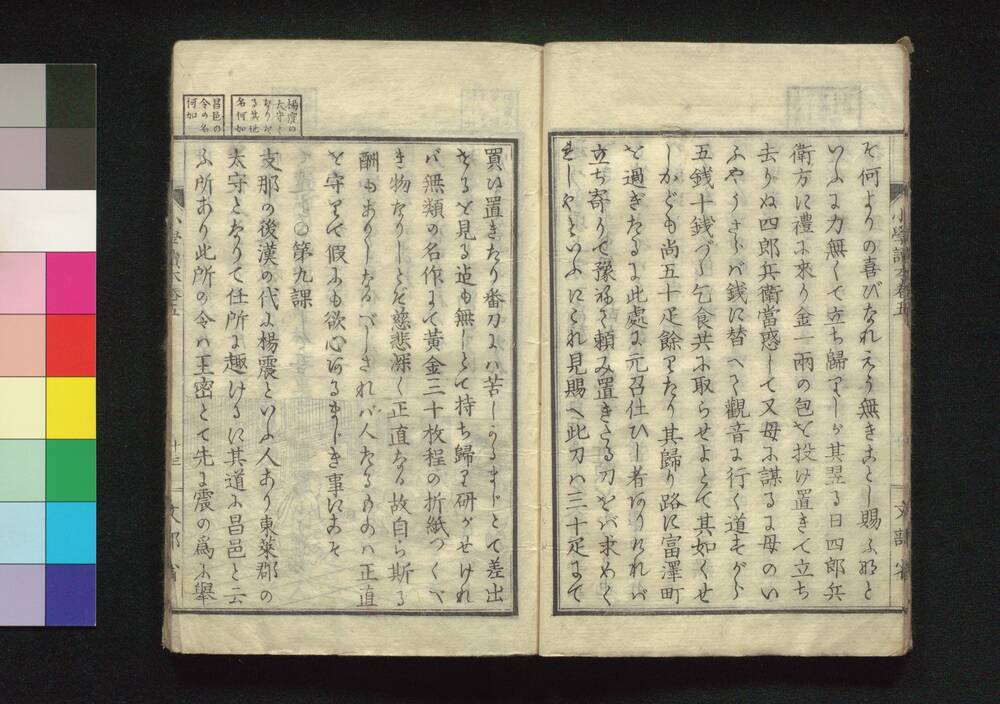 を何よりの喜びなれえう無きことし賜ふなと
いふに力無くて立ち歸りしが其翌る日四郎兵
衛方に禮に來り金一兩の包を投け置きて立ち
去りぬ四郎兵衛當惑して又母に謀るに母のい
ふやうさらバ錢に替へて觀音に行く道すがら
五錢十錢づゝ乞食共に取らせよとて其如くせ
しかども尚五十疋餘りたり其歸り路に富澤町
を過ぎたるに此處に元召仕ひし者ありけれバ
立ち寄りて豫ねて頼み置きたる刀をバ求めく
れしやといふにこれ見賜へ此刀ハ三十疋にて
小學讀本卷五
文部省
買ひ置きたり番刀にハ苦しかるまじとて差出
せるを見る迠も無しとて持ち歸り研がせけれ
バ無類の名作にて黄金三十枚程の折紙つくべ
き物なりしとぞ慈悲深く正直なる故自ら斯る
酬もありしなるべしされバ人たるものハ正直
を守りて假にも欲心あるまじき事にこそ
○第九課
支那の後漢の代に楊震といふ人あり東萊郡の
太守となりて任所に趣けるに其道に昌邑と云
ふ所あり此所の令ハ王密とて先に震の爲に舉
楊震の
太守と
なりた
る其地
名何如
昌邑の
令の名
何如
小學讀本卷五
十三
文部省